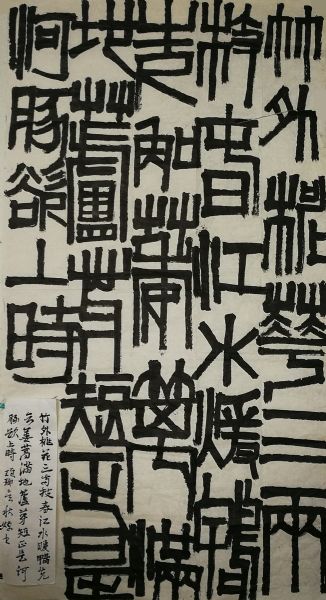 竹外桃華三兩
枝春江水煖鴨
先知蔞蒿滿
地蘆芽短正是
河豚欲上時
竹外桃花三两枝春江水暖鴨先
知蔞蒿滿地蘆芽短正是河
豚欲上時